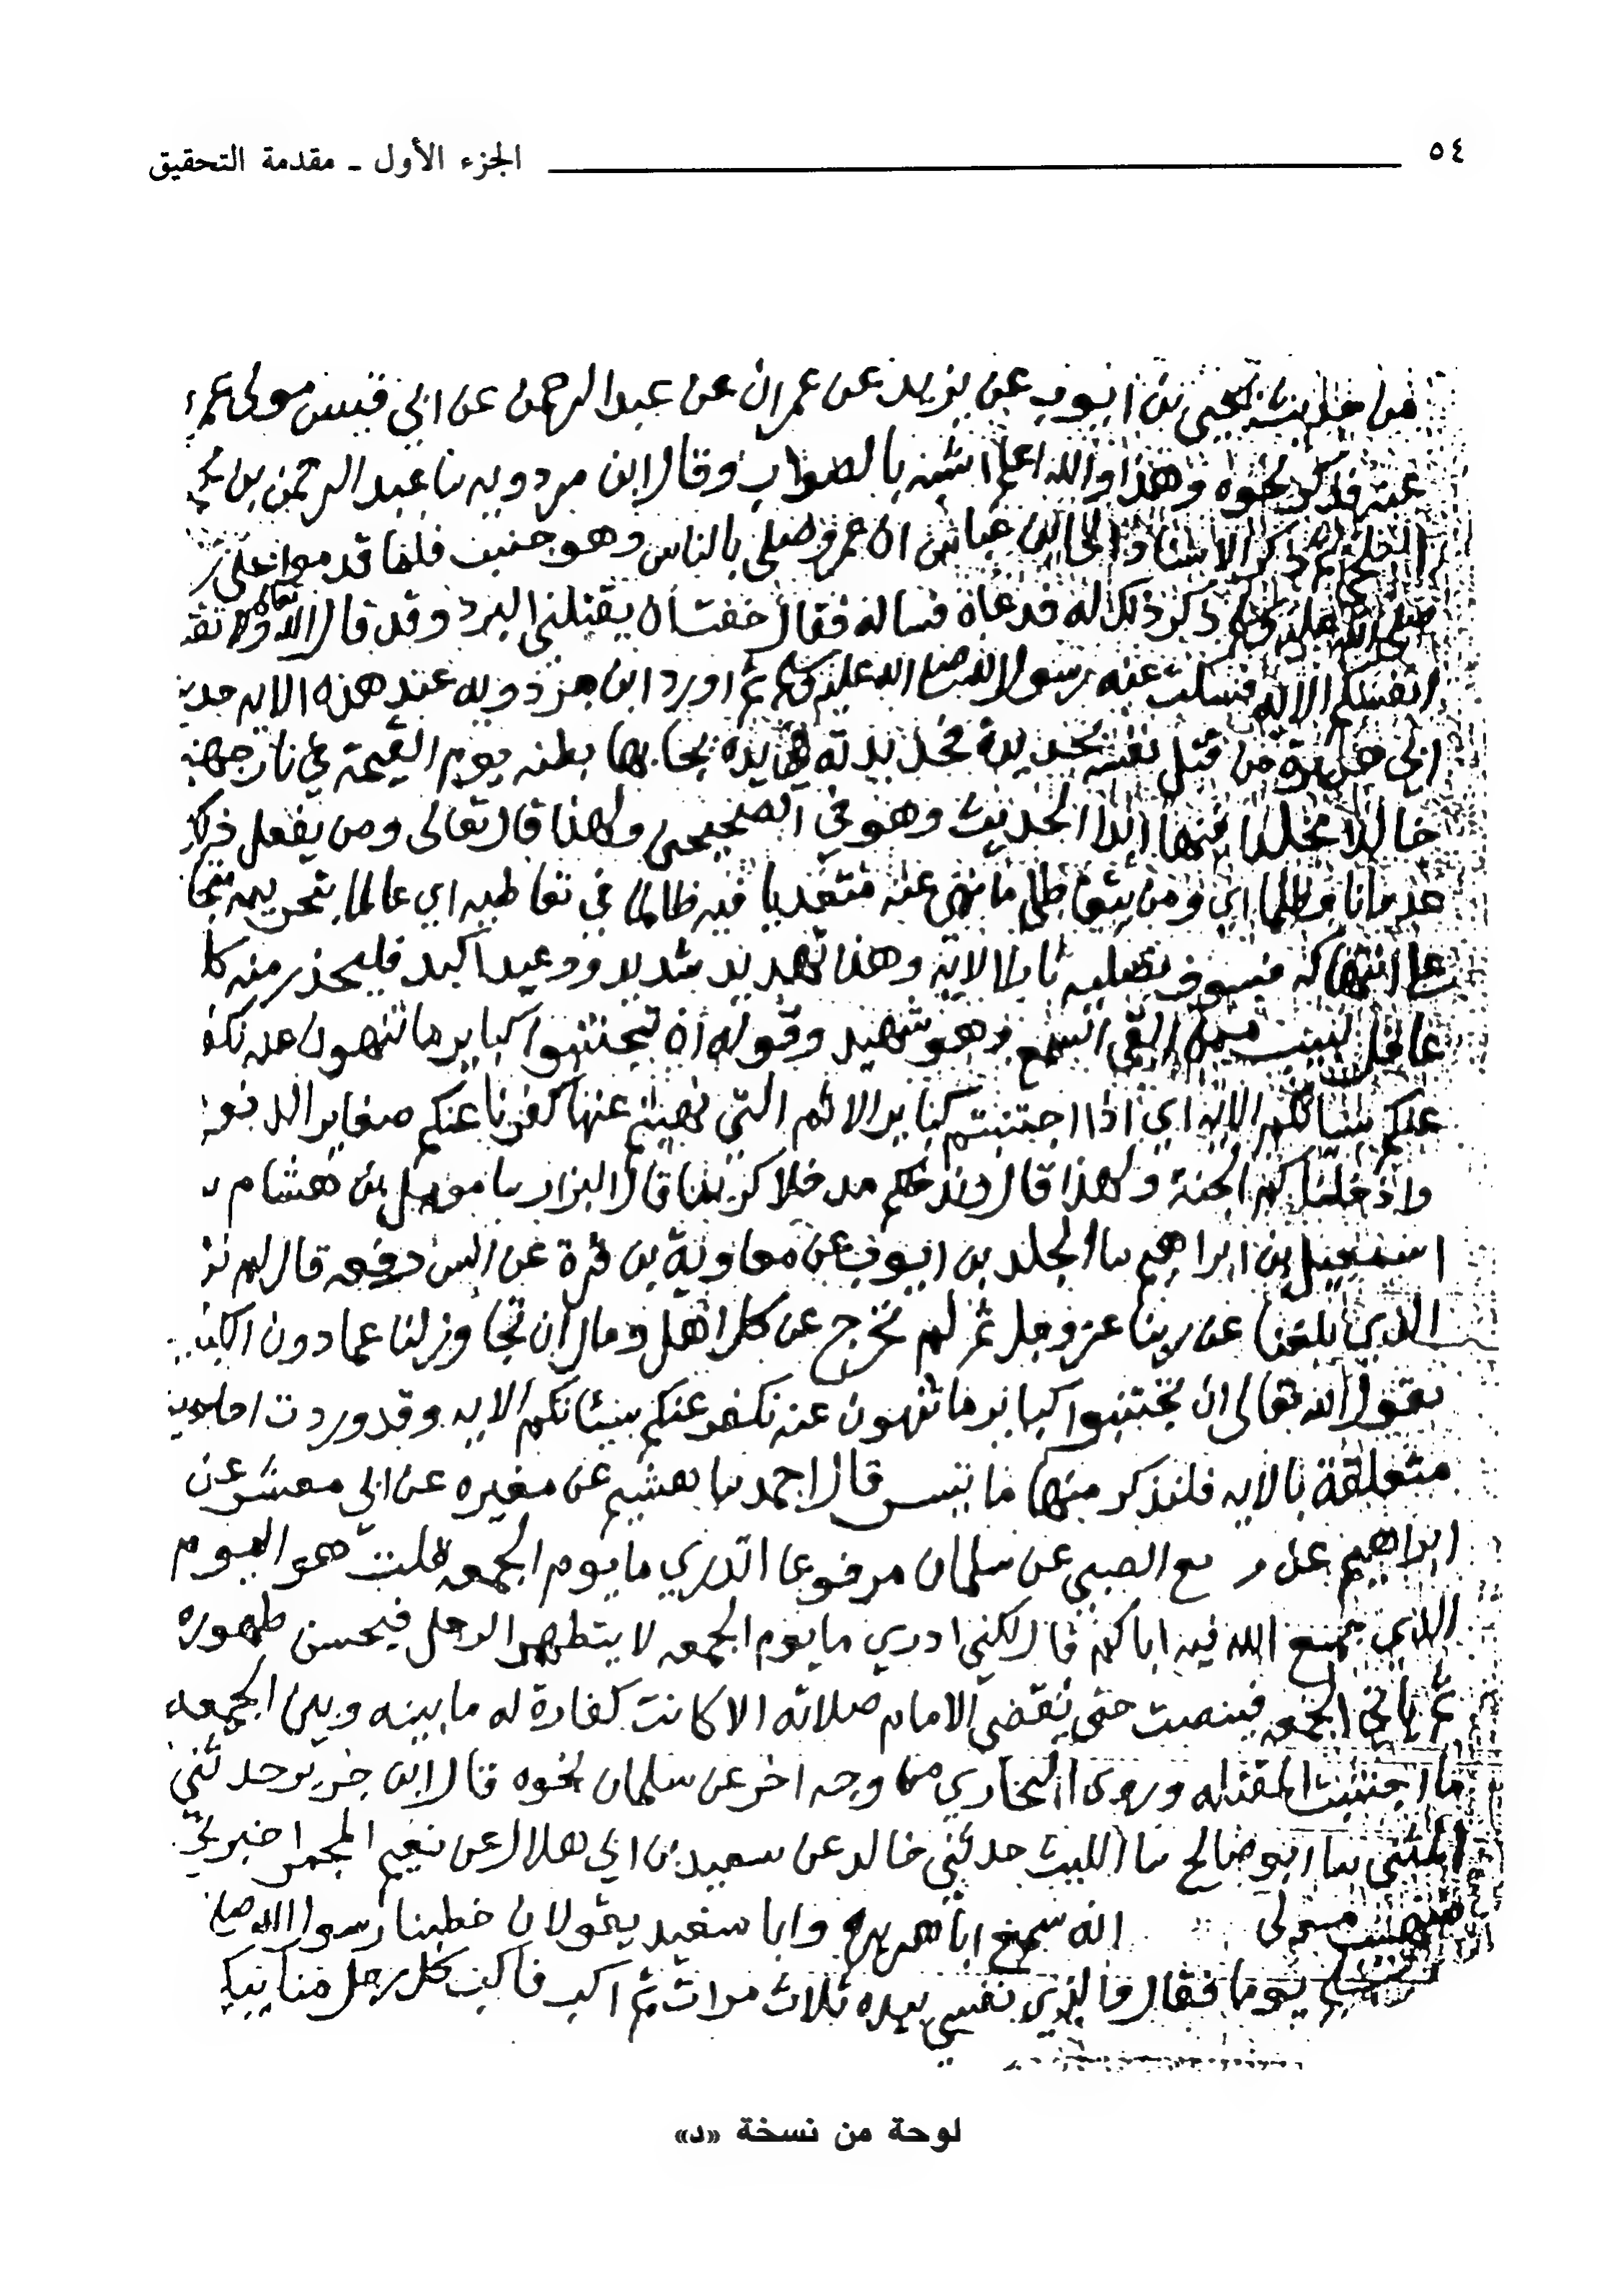 ٥٤ الجزء الأول ـ مقدمة التحقيق
من حديث يحيى بن ايوب عن يزيد عن عمران عن عبد الرحمن عن ابي قيس مولى عمر
عنه فذكر نحوه وهذا والله اعلم اشبه بالصواب وقال ابن مردويه سا عبد الرحمن بن
ذكر الاسناد الى ابن عباس ان عمرو صلى بالناس وهو جنب فلما قدموا على
صلى الله عليه وسلم ذكر ذلك له فدعاه فساله فقال خفت ان يقتلني البرد وقد قال الله تعالى ولا تقتلوا
انفسكم الايه فسكت عنه رسول الله صلى الله عليه وسلم ثم اورد ابن مردويه عند هذه الايه
ابي هريرة من قتل نفسه بحديدة فحديدته في يده يجا بها بطنه يوم القيمة في نار جهنم
خالدا مخلدا فيها ابدا الحديث وهو في الصحيحين ولهذا قال تعالى ومن يفعل ذلك
عدوانا وظلما اي ومن يتعاطى ما نهى عنه متعديا فيه ظالما في تعاطيه اي عالما بتحريمه
على انتهاكه فسوف نصليه نارا الاية وهذا تهديد شديد ووعيد اكيد فليحذر منه كل
عاقل لبيب ممن القى السمع وهو شهيد وقوله ان تجتنبوا كباير ما تنهون عنه نكفر
عنكم سيئاتكم الايه اي اذا اجتنبتم كباير الاثم التي نهيتم عنها كفرنا عنكم صغاير الذنوب
وادخلناكم الجنة ولهذا قال وندخلكم مدخلا كريما قال البزار سا مومل بن هشام
اسمعيل بن ابراهيم سا الجلد بن ايوب عن معاوية بن قرة عن انس دفعه قال لم نر
الذي بلغنا عن ربنا عز وجل ثم لم نخرج عن كل اهل ومال ان تجاوز لنا عما دون الكباير
يقول الله تعالى ان تجتنبوا كباير ما تنهون عنه نكفر عنكم سيئاتكم الايه وقد وردت احاديث
متعلقة بالايه فلنذكر منها ما تيسر قال احمد سا هشيم عن مغيره عن ابي معشر عن
ابراهيم عن الضبي عن سلمان مرفوعا اتدري ما يوم الجمعه قلت هو اليوم
الذي جمع الله فيه اباكم قال لكني ادري ما يوم الجمعه لا يتطهر الرجل فيحسن طهوره
ثم ياتي الجمعه فينصت حتى يقضي الامام صلاته الا كانت كفارة له ما بينه وبين الجمعه
ما اجتنبت المقتله وروى البخاري من وجه اخر عن سلمان نحوه قال ابن جرير حدثني
المثنى سا ابو صالح سا الليث حدثني خالد عن سعيد بن ابي هلال عن نعيم المجمر اخبرني
صهيب مولى انه سمع ابا هريره وابا سعيد يقولان خطبنا رسول الله صلى
يوما فقال والذي نفسي بيده ثلاث مرات ثم اكب فاكب كل رجل منا يبكي
لوحة من نسخة «د»